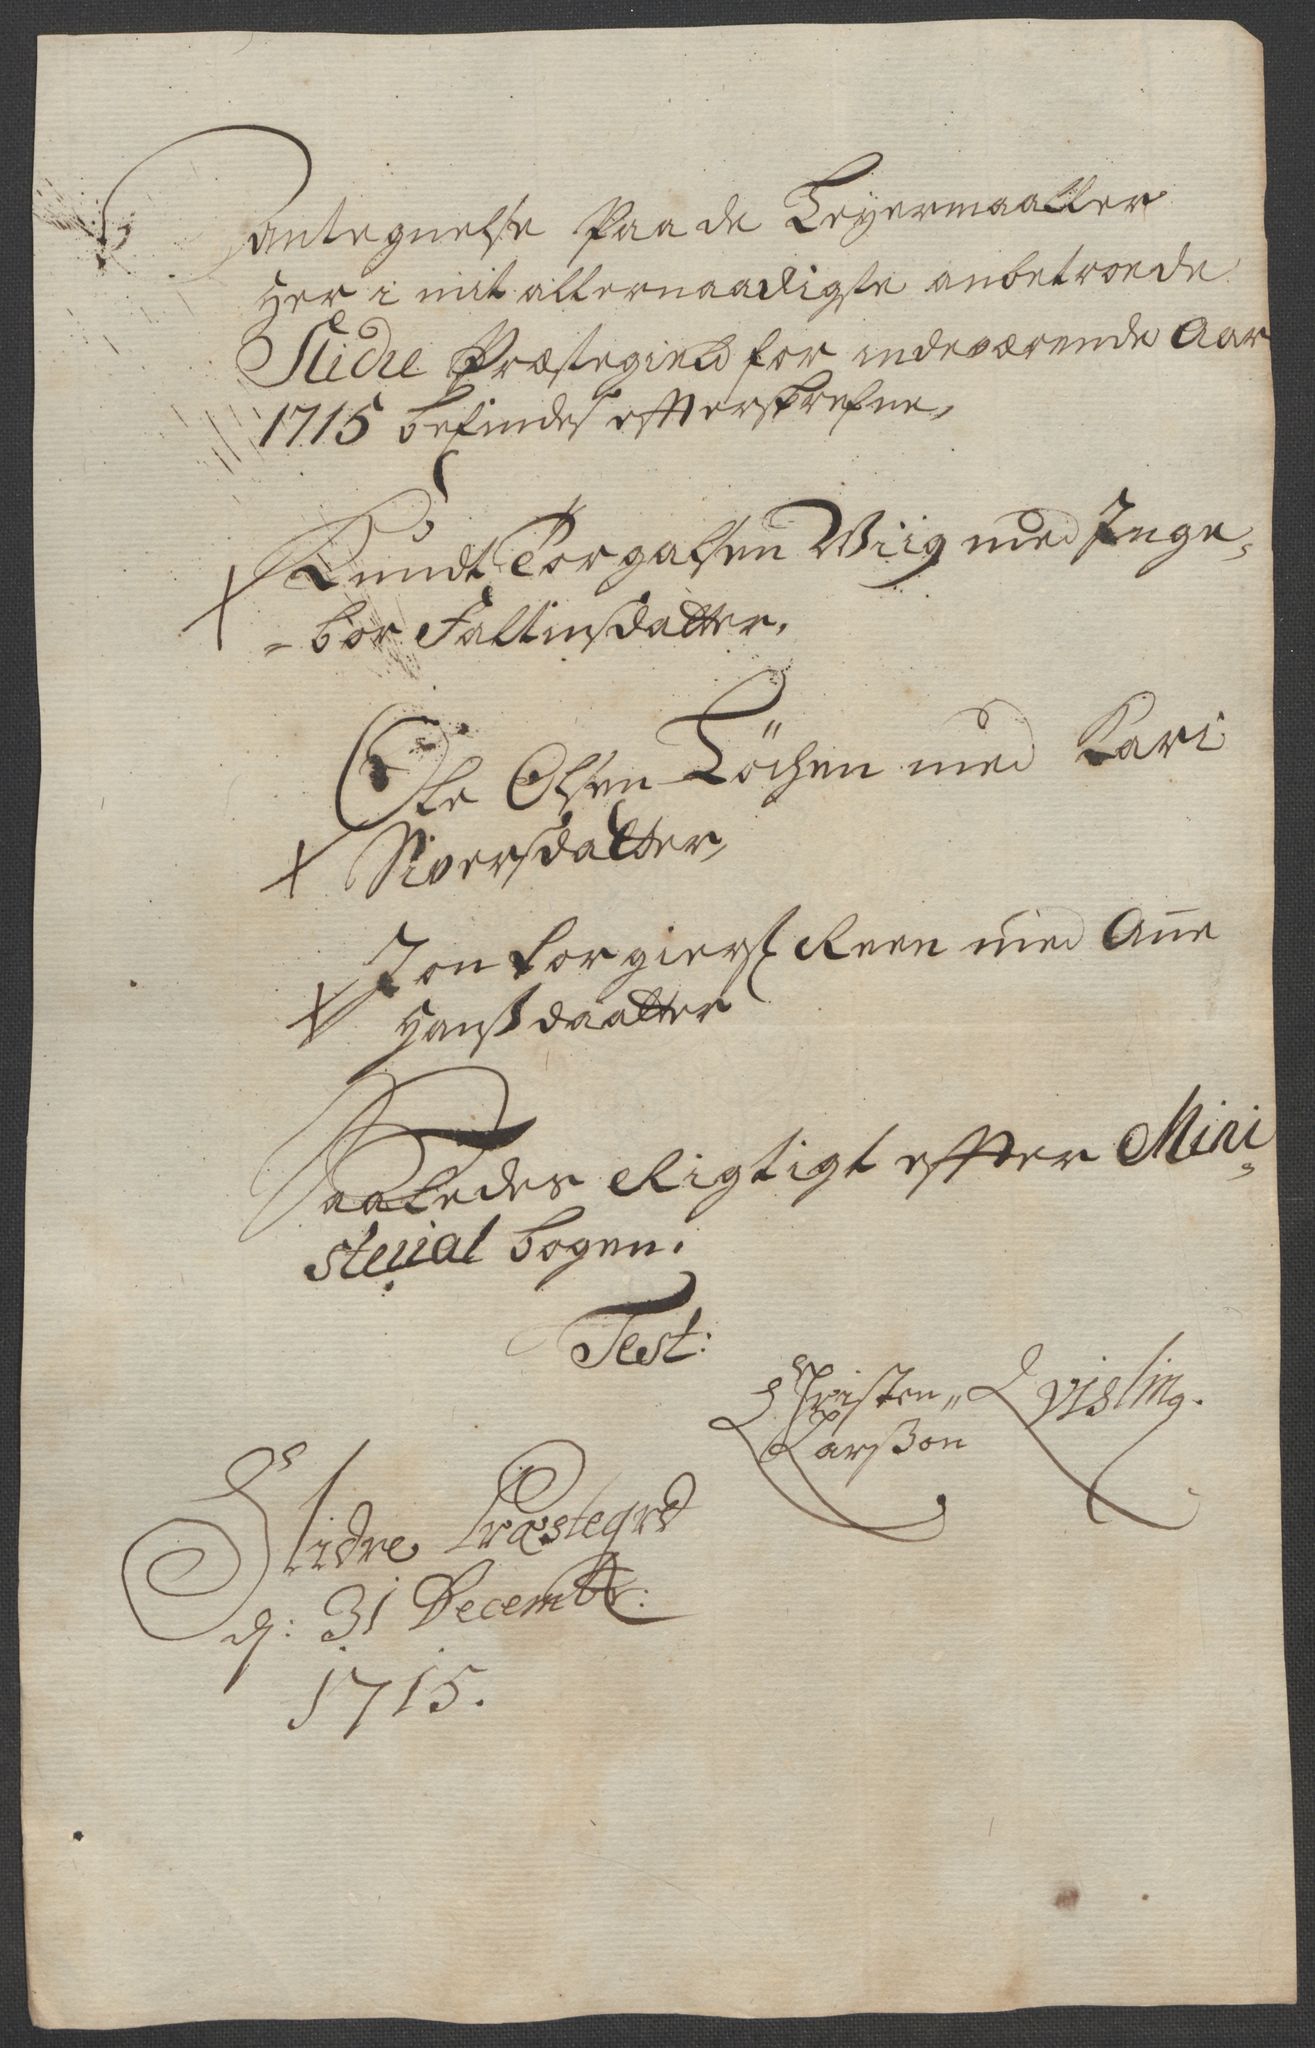 Antegnelse Paa de Leyermaaller
Her i mit allernaadigste anbetroede
Slidre Præstegield for indeværende Aar
1715 befindes effterskrefne,
Knudt Torgalsen Wiig med Inge-
-bor Faltinsdatter.
Ole Olsen Löchen med Kari
Siversdatter,
Jon Torgiers: Reen med Añe
Hanßdaatter
Saaledes Rigtigt effter Mini-
sterial bogen.
Test:
Christen Larßon Qvisling.
Slidre Præstegrd
d: 31 Decembr:
1715.